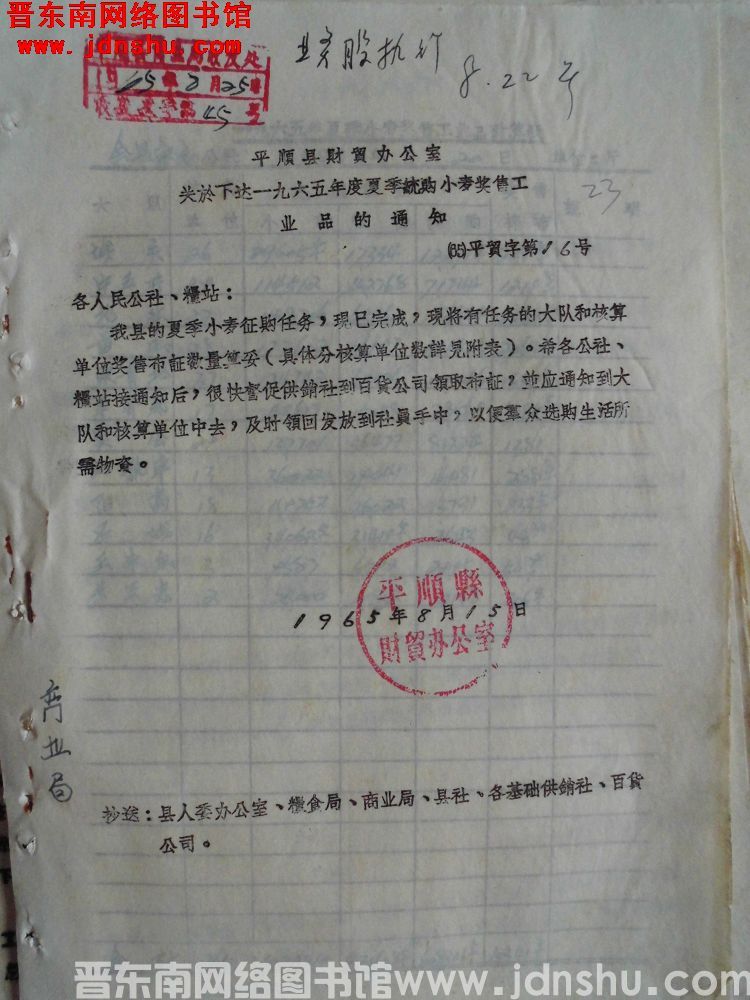 晋东南网络图书馆
www.jdnshu.com
业务股执行
8.22号
1965年8月25日
收文 字第45号
平順县財貿办公室
关於下达一九六五年度夏季統购小麦奖售工
业品的通知
23
(65)平貿字第16号
各人民公社、糧站：
我县的夏季小麦征购任务，現已完成，現将有任务的大队和核算
单位奖售布証数量算妥（具体分核算单位数詳見附表）。希各公社、
糧站接通知后，很快督促供銷社到百貨公司領取布証，並应通知到大
队和核算单位中去，及时領回发放到社員手中，以便羣众选购生活所
需物資。
平順縣
財貿办公室
1965年8月15日
商业局
抄送：县人委办公室、糧食局、商业局、县社、各基础供銷社、百貨
公司。
晋东南网络图书馆www.jdnshu.com